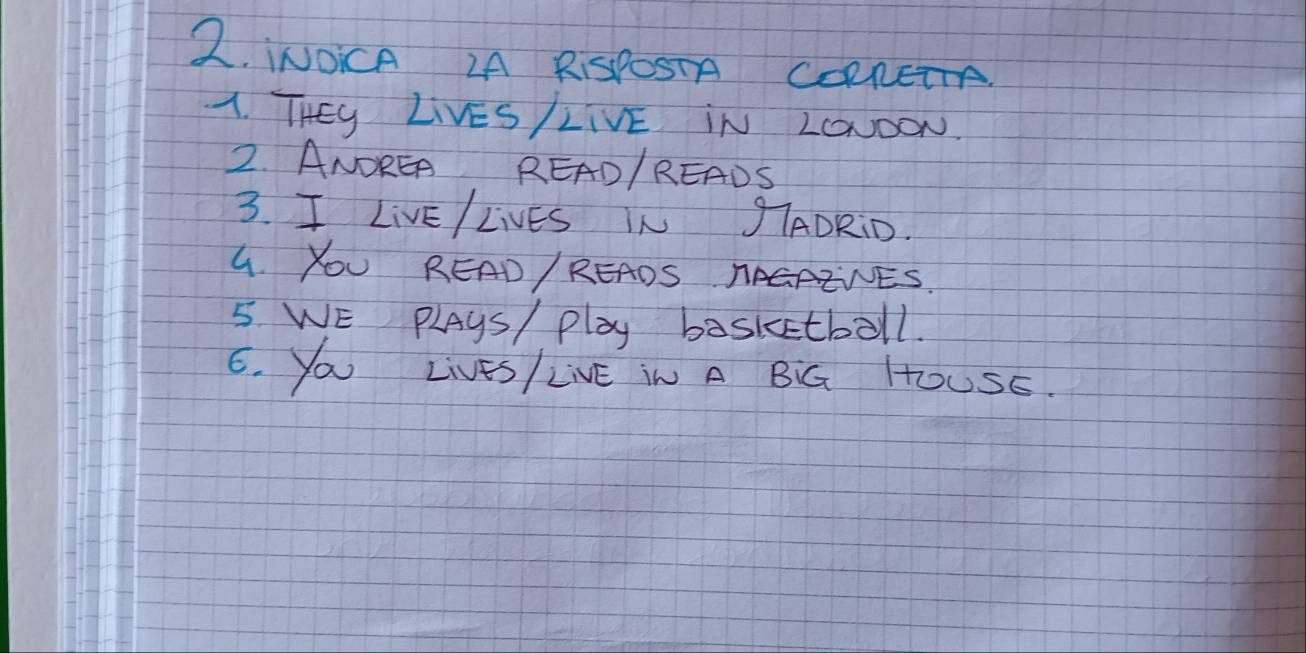 2. INDICA LA RISPOSTA CORRETTA.
1. THEY LIVES/LIVE IN LONDON.
2. ANDREA READ/READS
3. I LIVE/LIVES IN MADRID.
4. YOU READ/READS MAGAZINES.
5. WE PLAYS/play basketball.
6. YOU LIVES/LIVE IN A BIG HOUSE.